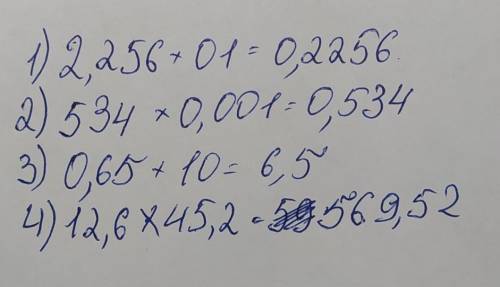 1) 2,256 × 01 = 0,2256.
2) 534 × 0,001 = 0,534
3) 0,65 × 10 = 6,5
4) 12,6 × 45,2 = 569,52